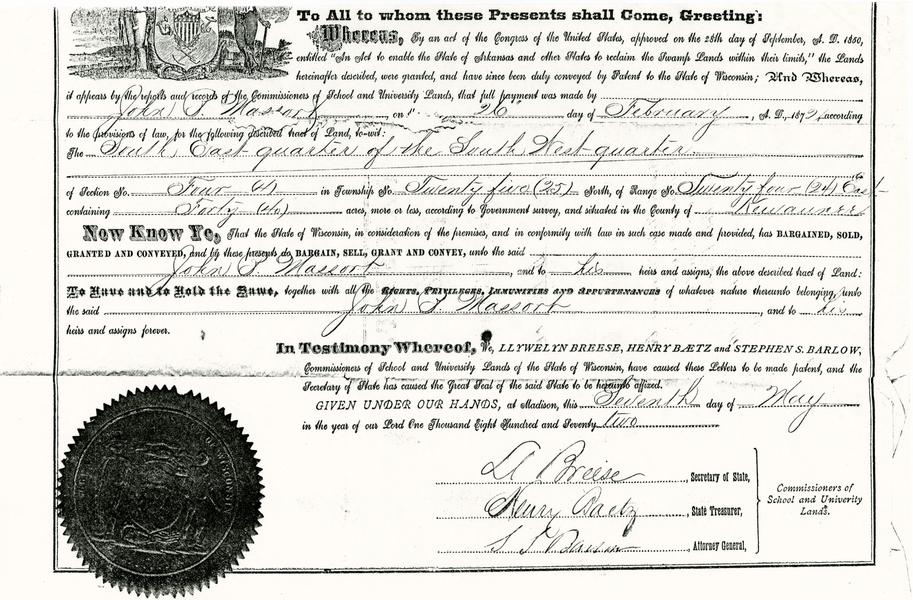 To All to whom these Presents shall Come, Greeting:
Whereas, By an act of the Congress of the United States, approved on the 28th day of September, A. D. 1850,
entitled "An Act to enable the State of Arkansas and other States to reclaim the Swamp Lands within their limits," the Lands
hereinafter described, were granted, and have since been duly conveyed by Patent to the State of Wisconsin; And Whereas,
it appears by the reports and records of the Commissioners of School and University Lands, that full payment was made by
John P. on 26 day of February, A. D., 1872, according
to the provisions of law, for the following described tract of Land, to-wit:
The South East quarter of the South West quarter
of Section No. Four (4) in Township No. Twenty five (25) North, of Range No. Twenty four (24) East
containing Forty (40) acres, more or less, according to Government survey, and situated in the County of Kewaunee
Now Know Ye, That the State of Wisconsin, in consideration of the premises, and in conformity with law in such case made and provided, has BARGAINED, SOLD,
GRANTED AND CONVEYED, and by these presents do BARGAIN, SELL, GRANT AND CONVEY, unto the said
John P. , and to his heirs and assigns, the above described tract of Land:
To Have and to Hold the Same, together with all the RIGHTS, PRIVILEGES, IMMUNITIES AND APPURTENANCES of whatever nature thereunto belonging, unto
the said John P. , and to his
heirs and assigns forever.
In Testimony Whereof, We, LLYWELYN BREESE, HENRY BÆTZ and STEPHEN S. BARLOW,
Commissioners of School and University Lands of the State of Wisconsin, have caused these Letters to be made patent, and the
Secretary of State has caused the Great Seal of the said State to be hereunto affixed.
GIVEN UNDER OUR HANDS, at Madison, this Seventh day of May
in the year of our Lord One Thousand Eight Hundred and Seventy two
Ll Breese, Secretary of State,
Henry Baetz, State Treasurer,
S S Barlow, Attorney General,
Commissioners of
School and Univerity
Lands.